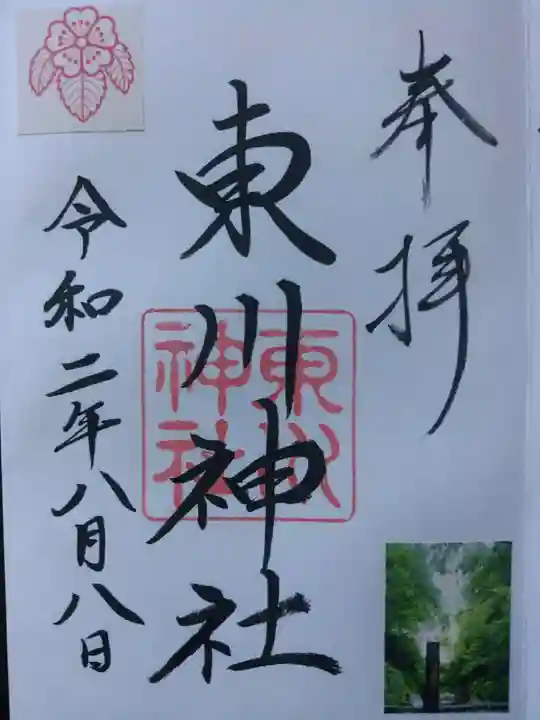 奉拝
東川神社
東川神社
令和二年八月八日